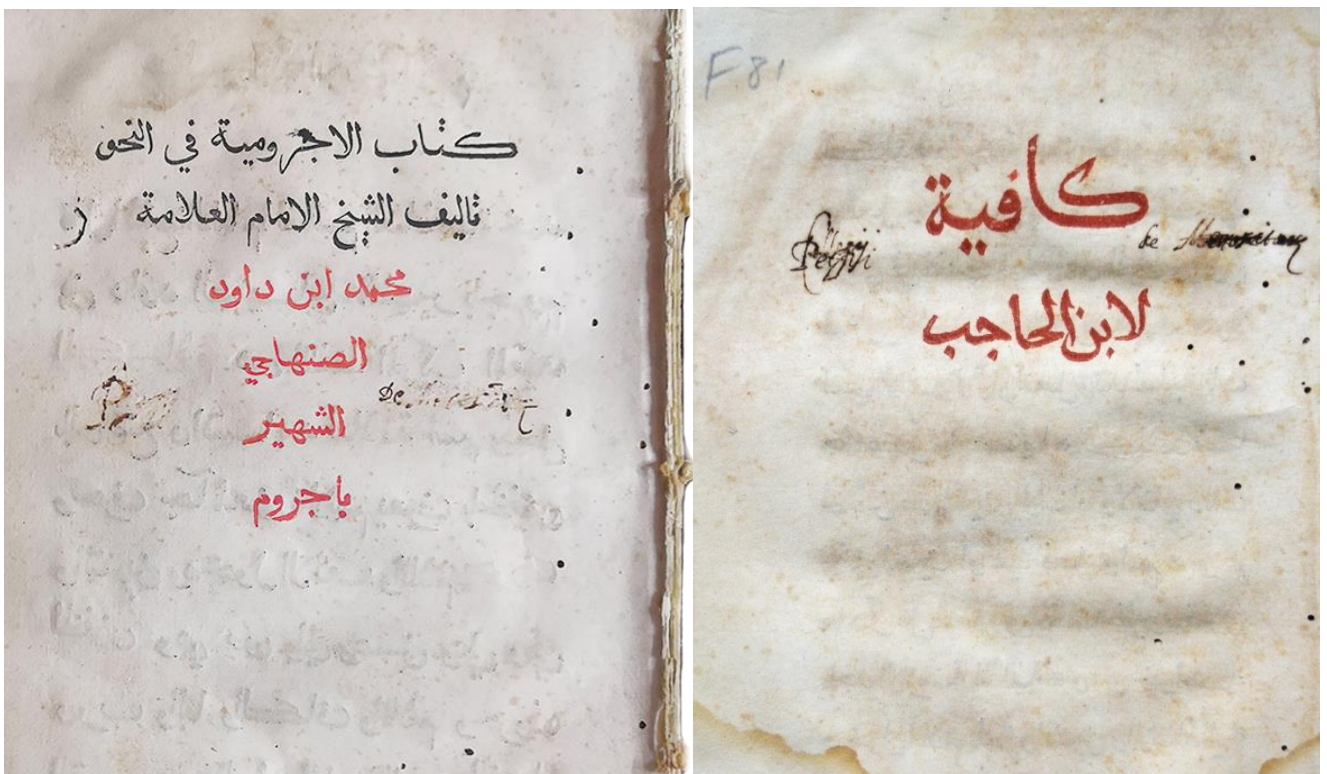 كتاب الاجرومية في النحو
تاليف الشيخ الامام العلامة
محمد ابن داود
الصنهاجي
الشهير
باجروم
De
F 81
كافية
de
لابن الحاجب